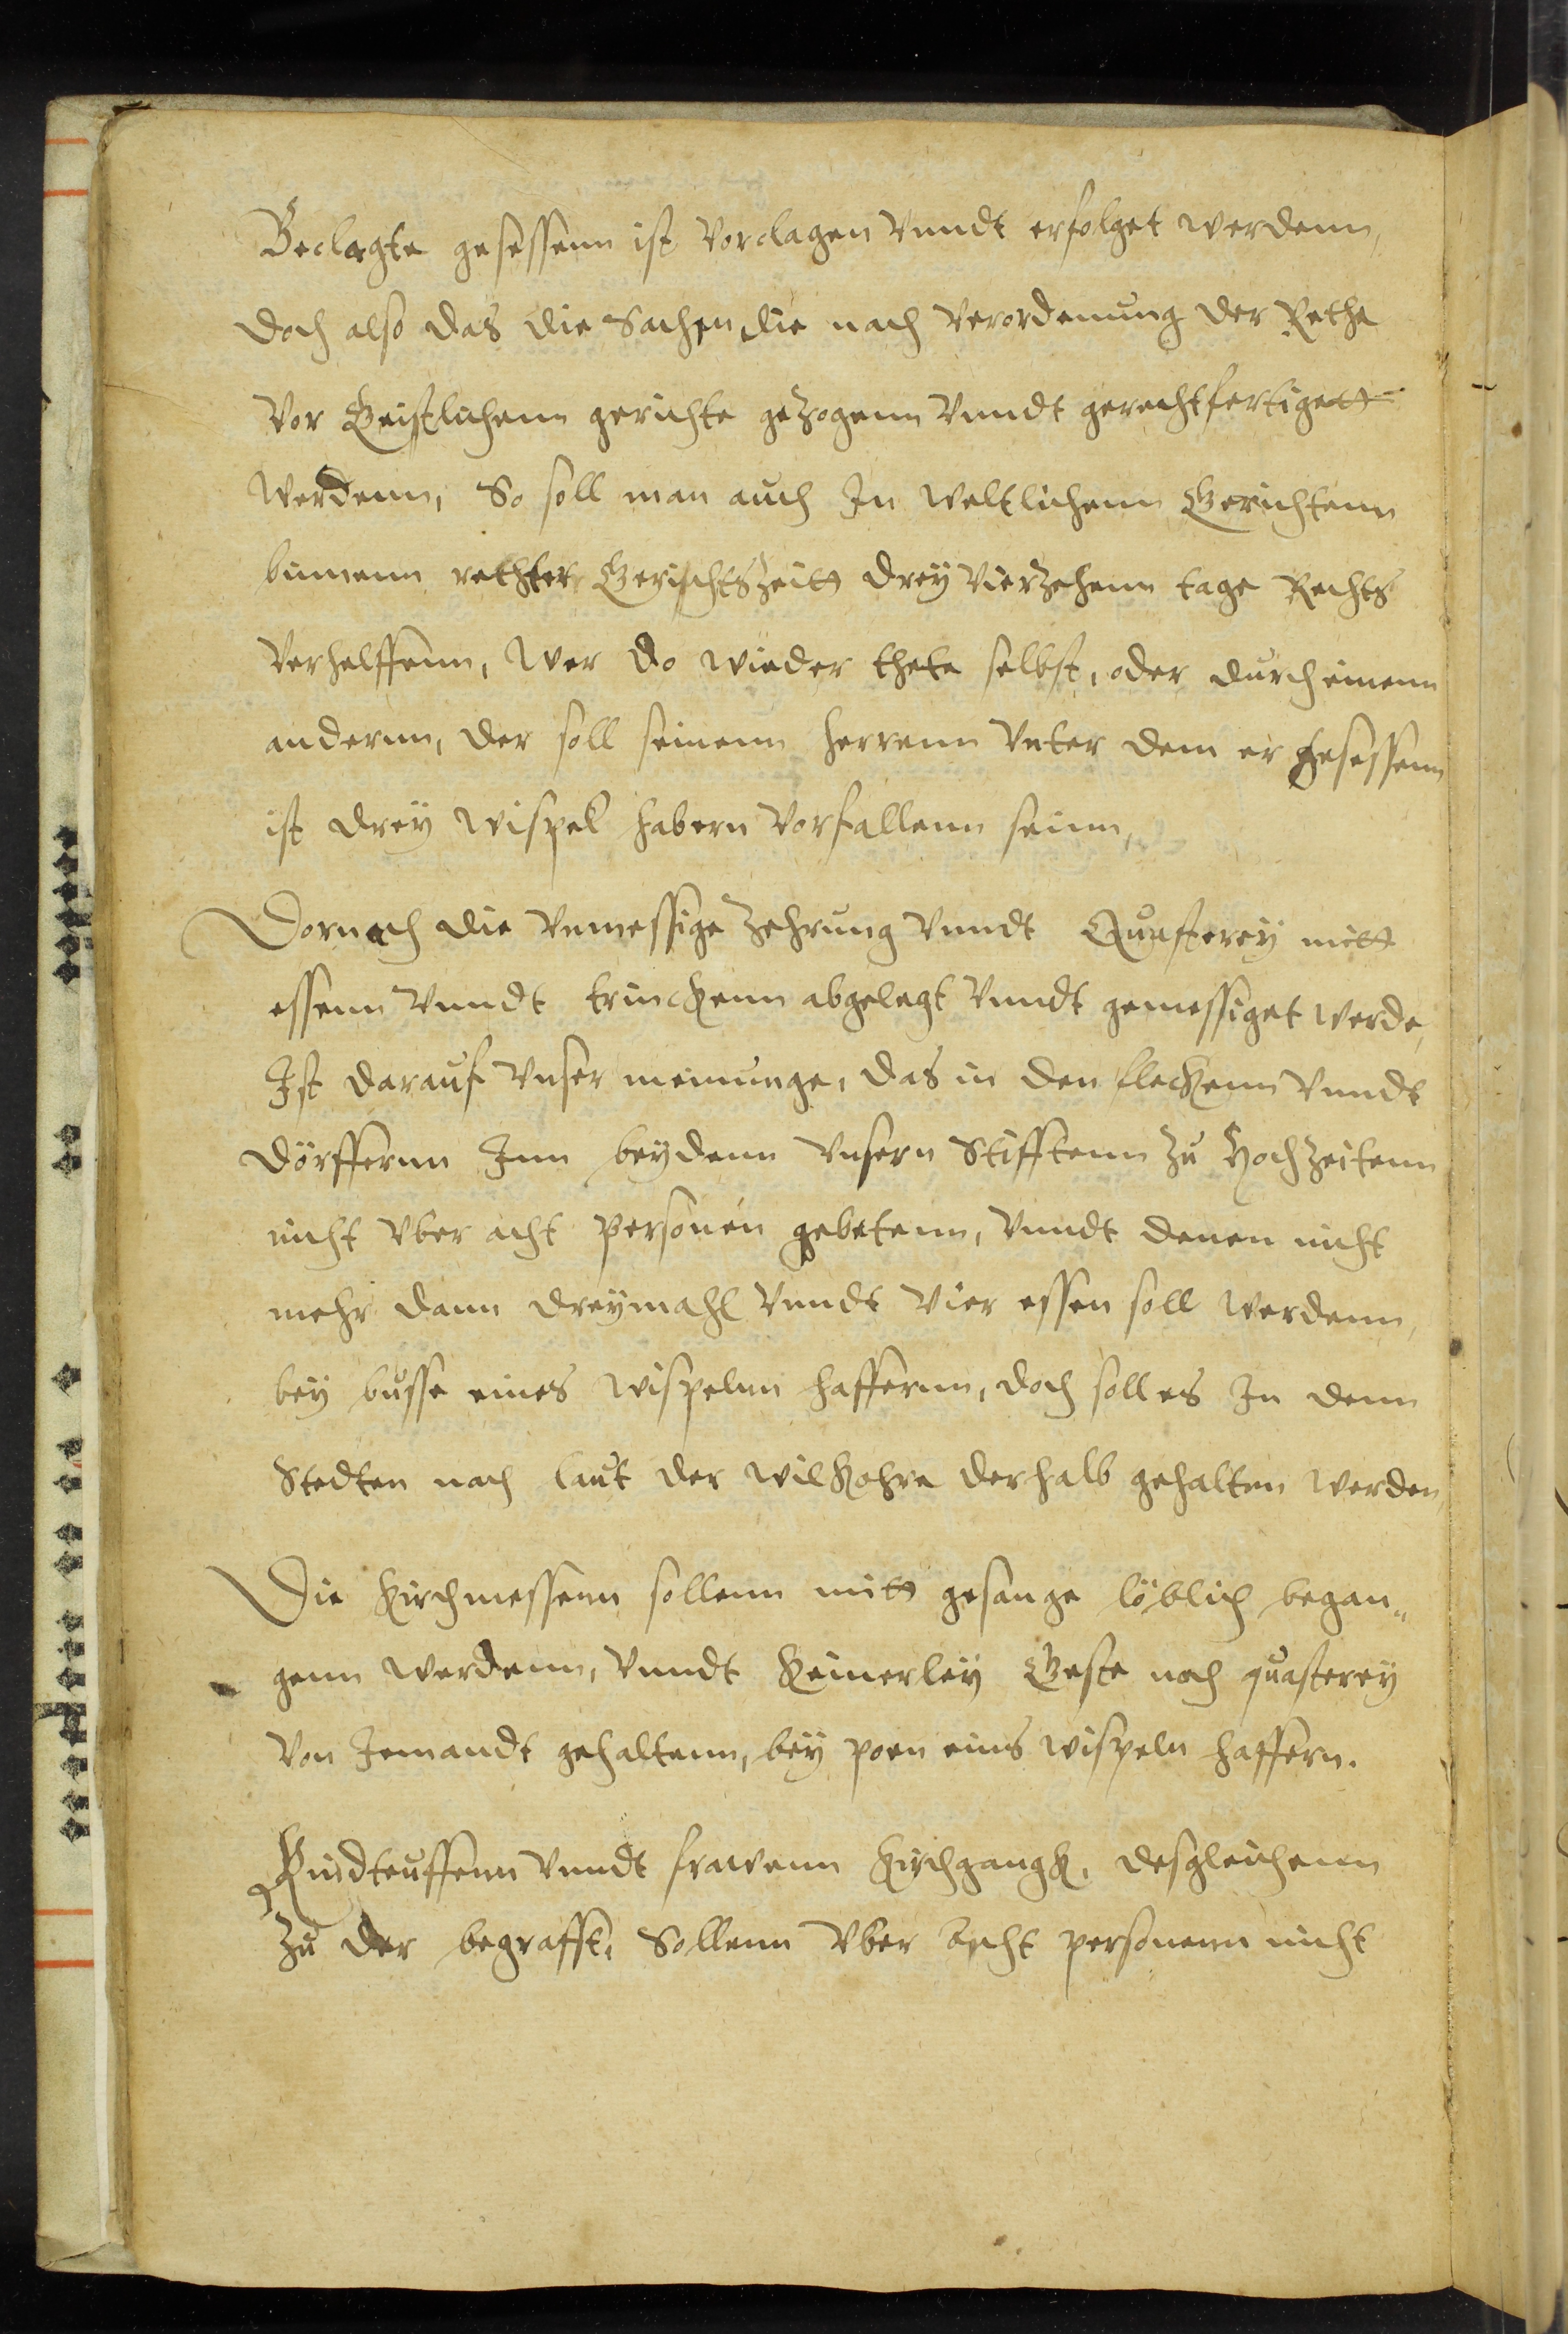 Beclagte gesessenn ist vorclagen vnndt erfolget werdenn,
doch also das die Sachen, die nach verordenung der Rethe
vor Geistlichenn gerichte gezogenn vnndt gerechtfertigett
werdenn, So soll man auch In weltlichenn Gerichtenn
binnenn rechter Gerichtszeitt drey vierzehenn tage Rechts
verhelffenn, wer do wieder thete selbst, oder durch einenn
andernn, der soll seinenn herrenn vnter dem er gesessenn
ist drey wispel habern vorfallenn seinn,
Dornach die vnmessige zehrung vnndt Quasterey mitt
essenn vnndt trinckenn abgelegt vnndt gemessiget werde,
Ist darauf vnser meinunge, das in den fleckenn vnndt
dörffernn Inn beydenn vnsern Stifftenn zu Hochzeitenn
nicht vber acht personen gebetenn, vnndt denen nicht
mehr dann dreymahl vnndt vier essen soll werdenn,
bey busse eines wispelnn haffernn, doch soll es In denn
Stedten nach laut der wilkohre derhalb gehalten werden,
Die kirchmessenn sollenn mitt gesange löblich began„
genn werdenn, vnndt keinerley Geste noch quasterey
von Jemandt gehaltenn, bey poen eins wispeln haffern.
Kindteuffenn vnndt frawenn kirchgangk, desgleichenn
zu der begrafft, Sollenn vber acht personenn nicht